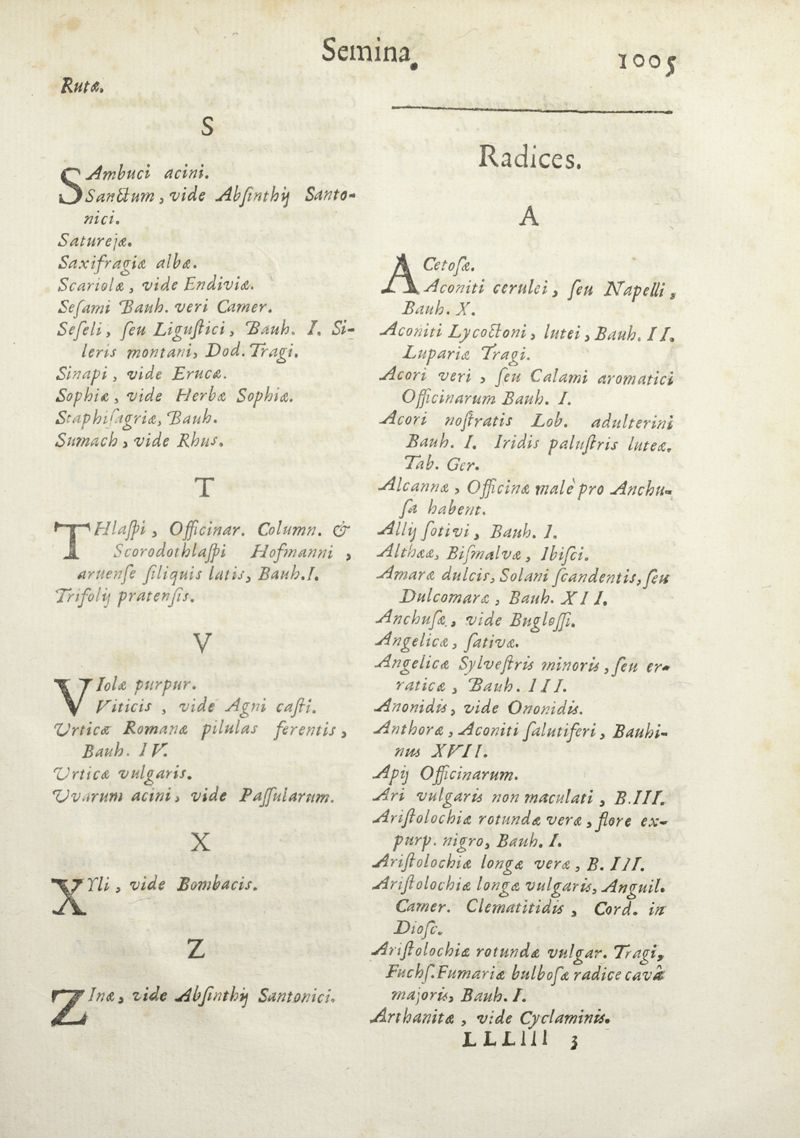 Semina. 1005
Rutæ.
S
SAmbuci acini.
Sanctum, vide Absinthij Santo-
nici.
Saturejæ.
Saxifragiæ albæ.
Scariolæ, vide Endiviæ.
Seſami Bauh. veri Camer.
Seſeli, ſeu Liguſtici, Bauh. I. Si-
leris montani, Dod. Tragi.
Sinapi, vide Erucæ.
Sophiæ, vide Herbæ Sophiæ.
Staphiſagriæ, Bauh.
Sumach, vide Rhus.
T
THlaſpi, Officinar. Column. &
Scorodothlaſpi Hofmanni,
aruenſe ſiliquis latis, Bauh. I.
Trifolij pratenſis.
V
VIolæ purpur.
Viticis, vide Agni caſti.
Urticæ Romanæ pilulas ferentis,
Bauh. IV.
Urticæ vulgaris.
Uvarum acini, vide Paſſularum.
X
XYli, vide Bombacis.
Z
ZInæ, vide Abſinthij Santonici.
Radices.
A
ACetoſæ.
Aconiti cerulei, ſeu Napelli,
Bauh. X.
Aconiti Lycoctoni, lutei, Bauh. II.
Lupariæ Tragi.
Acori veri, ſeu Calami aromatici
Officinarum Bauh. I.
Acori noſtratis Lob. adulterini
Bauh. I. Iridis paluſtris luteæ.
Tab. Ger.
Alcannæ, Officinæ malè pro Anchu-
ſa habent.
Allij ſotivi, Bauh. I.
Althææ, Biſmalvæ, Ibiſci.
Amaræ dulcis, Solani ſcandentis, ſeu
Dulcomaræ, Bauh. XII.
Anchuſæ, vide Bugloſſi.
Angelicæ, ſativæ.
Angelicæ Sylveſtris minoris, ſeu er-
raticæ, Bauh. III.
Anonidis, vide Ononidis.
Anthoræ, Aconiti ſalutiferi, Bauhi-
nus XVII.
Apij Officinarum.
Ari vulgaris non maculati, B. III.
Ariſtolochiæ rotundæ veræ, flore ex-
purp. nigro, Bauh. I.
Ariſtolochiæ longæ veræ, B. III.
Ariſtolochiæ longæ vulgaris, Anguil.
Camer. Clematitidis, Cord. in
Dioſc.
Ariſtolochiæ rotundæ vulgar. Tragi,
Fuchſ. Fumariæ bulboſæ radice cavâ
majoris, Bauh. I.
Arthanitæ, vide Cyclaminis.
LLLlll 3